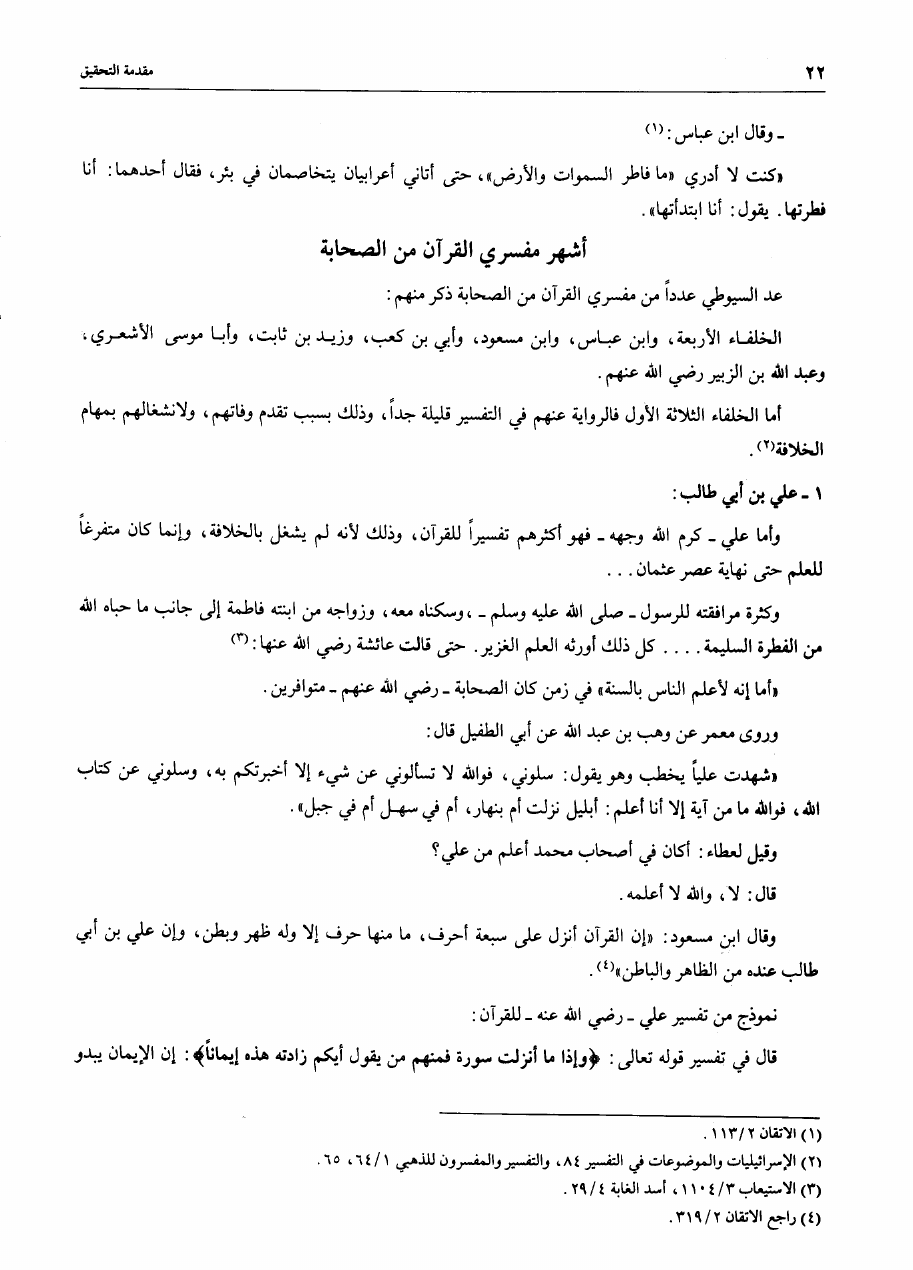 ٢٢ مقدمة التحقيق
ـ وقال ابن عباس:(١)
«كنت لا أدري «ما فاطر السموات والأرض»، حتى أتاني أعرابيان يتخاصمان في بئر، فقال أحدهما: أنا
فطرتها. يقول: أنا ابتدأتها».
أشهر مفسري القرآن من الصحابة
عد السيوطي عدداً من مفسري القرآن من الصحابة ذكر منهم:
الخلفاء الأربعة، وابن عباس، وابن مسعود، وأبي بن كعب، وزيد بن ثابت، وأبا موسى الأشعري،
وعبد الله بن الزبير رضي الله عنهم.
أما الخلفاء الثلاثة الأول فالرواية عنهم في التفسير قليلة جداً، وذلك بسبب تقدم وفاتهم، ولانشغالهم بمهام
الخلافة(٢).
١ ـ علي بن أبي طالب:
وأما علي ـ كرم الله وجهه ـ فهو أكثرهم تفسيراً للقرآن، وذلك لأنه لم يشغل بالخلافة، وإنما كان متفرغاً
للعلم حتى نهاية عصر عثمان...
وكثرة مرافقته للرسول ـ صلى الله عليه وسلم ـ ،وسكناه معه، وزواجه من ابنته فاطمة إلى جانب ما حباه الله
من الفطرة السليمة.... كل ذلك أورثه العلم الغزير. حتى قالت عائشة رضي الله عنها:(٣)
«أما إنه لأعلم الناس بالسنة» في زمن كان الصحابة ـ رضي الله عنهم ـ متوافرين.
وروى معمر عن وهب بن عبد الله عن أبي الطفيل قال:
«شهدت علياً يخطب وهو يقول: سلوني، فوالله لا تسألوني عن شيء إلا أخبرتكم به، وسلوني عن كتاب
الله، فوالله ما من آية إلا أنا أعلم: أبليل نزلت أم بنهار، أم في سهل أم في جبل».
وقيل لعطاء: أكان في أصحاب محمد أعلم من علي؟
قال: لا، والله لا أعلمه.
وقال ابن مسعود: «إن القرآن أنزل على سبعة أحرف، ما منها حرف إلا وله ظهر وبطن، وإن علي بن أبي
طالب عنده من الظاهر والباطن»(٤).
نموذج من تفسير علي ـ رضي الله عنه ـ للقرآن:
قال في تفسير قوله تعالى: ﴿وإذا ما أنزلت سورة فمنهم من يقول أيكم زادته هذه إيماناً﴾: إن الإيمان يبدو
(١) الاتقان ١١٣/٢.
(٢) الإسرائيليات والموضوعات في التفسير ٨٤، والتفسير والمفسرون للذهبي ٦٤/١، ٦٥.
(٣) الاستيعاب ١١٠٤/٣، أسد الغابة ٢٩/٤.
(٤) راجع الاتقان ٣١٩/٢.